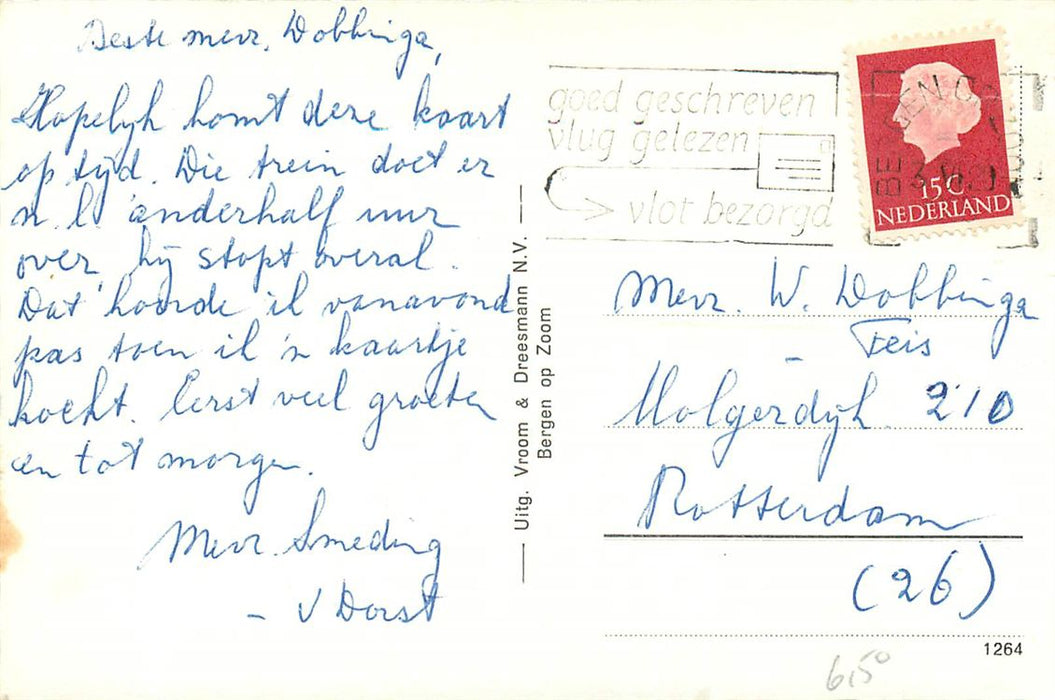 Beste mevr. Dobbinga,
Hopelijk komt deze kaart
op tijd. Die trein doet er
n.l. anderhalf uur
over, hij stopt overal.
Dat hoorde ik vanavond
pas toen ik 'n kaartje
kocht. Eerst veel groeten
en tot morgen.
Mevr. Smeding
- v Dorst
Uitg. Vroom & Dreesmann N.V.
Bergen op Zoom
goed geschreven
vlug gelezen
vlot bezorgd
15C
NEDERLAND
Mevr. W. Dobbinga
- Feis
Molgerdijk 210
Rotterdam
(26)
1264
6,50